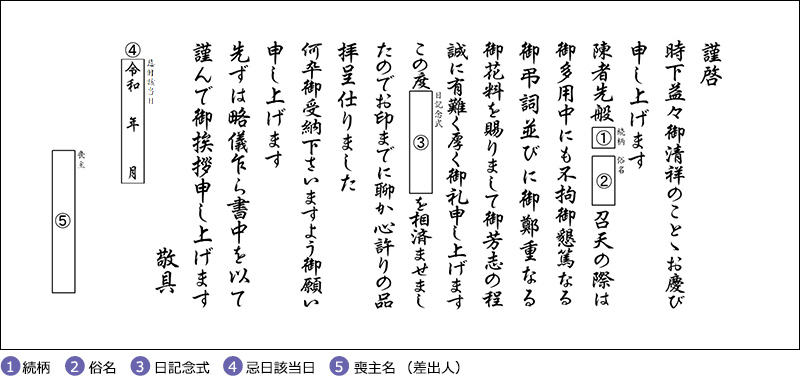 謹啓
時下益々御清祥のことゝお慶び
申し上げます
陳者先般 ① 続柄 ② 俗名 召天の際は
御多用中にも不拘御懇篤なる
御弔詞並びに御鄭重なる
御花料を賜りまして御芳志の程
誠に有難く厚く御礼申し上げます
この度 ③ 日記念式 を相済ませまし
たのでお印までに聊か心許りの品
拝呈仕りました
何卒御受納下さいますよう御願い
申し上げます
先ずは略儀乍ら書中を以て
謹んで御挨拶申し上げます
敬具
④ 忌日該当日 令和 年 月
喪主 ⑤
1 続柄 2 俗名 3 日記念式 4 忌日該当日 5 喪主名（差出人）